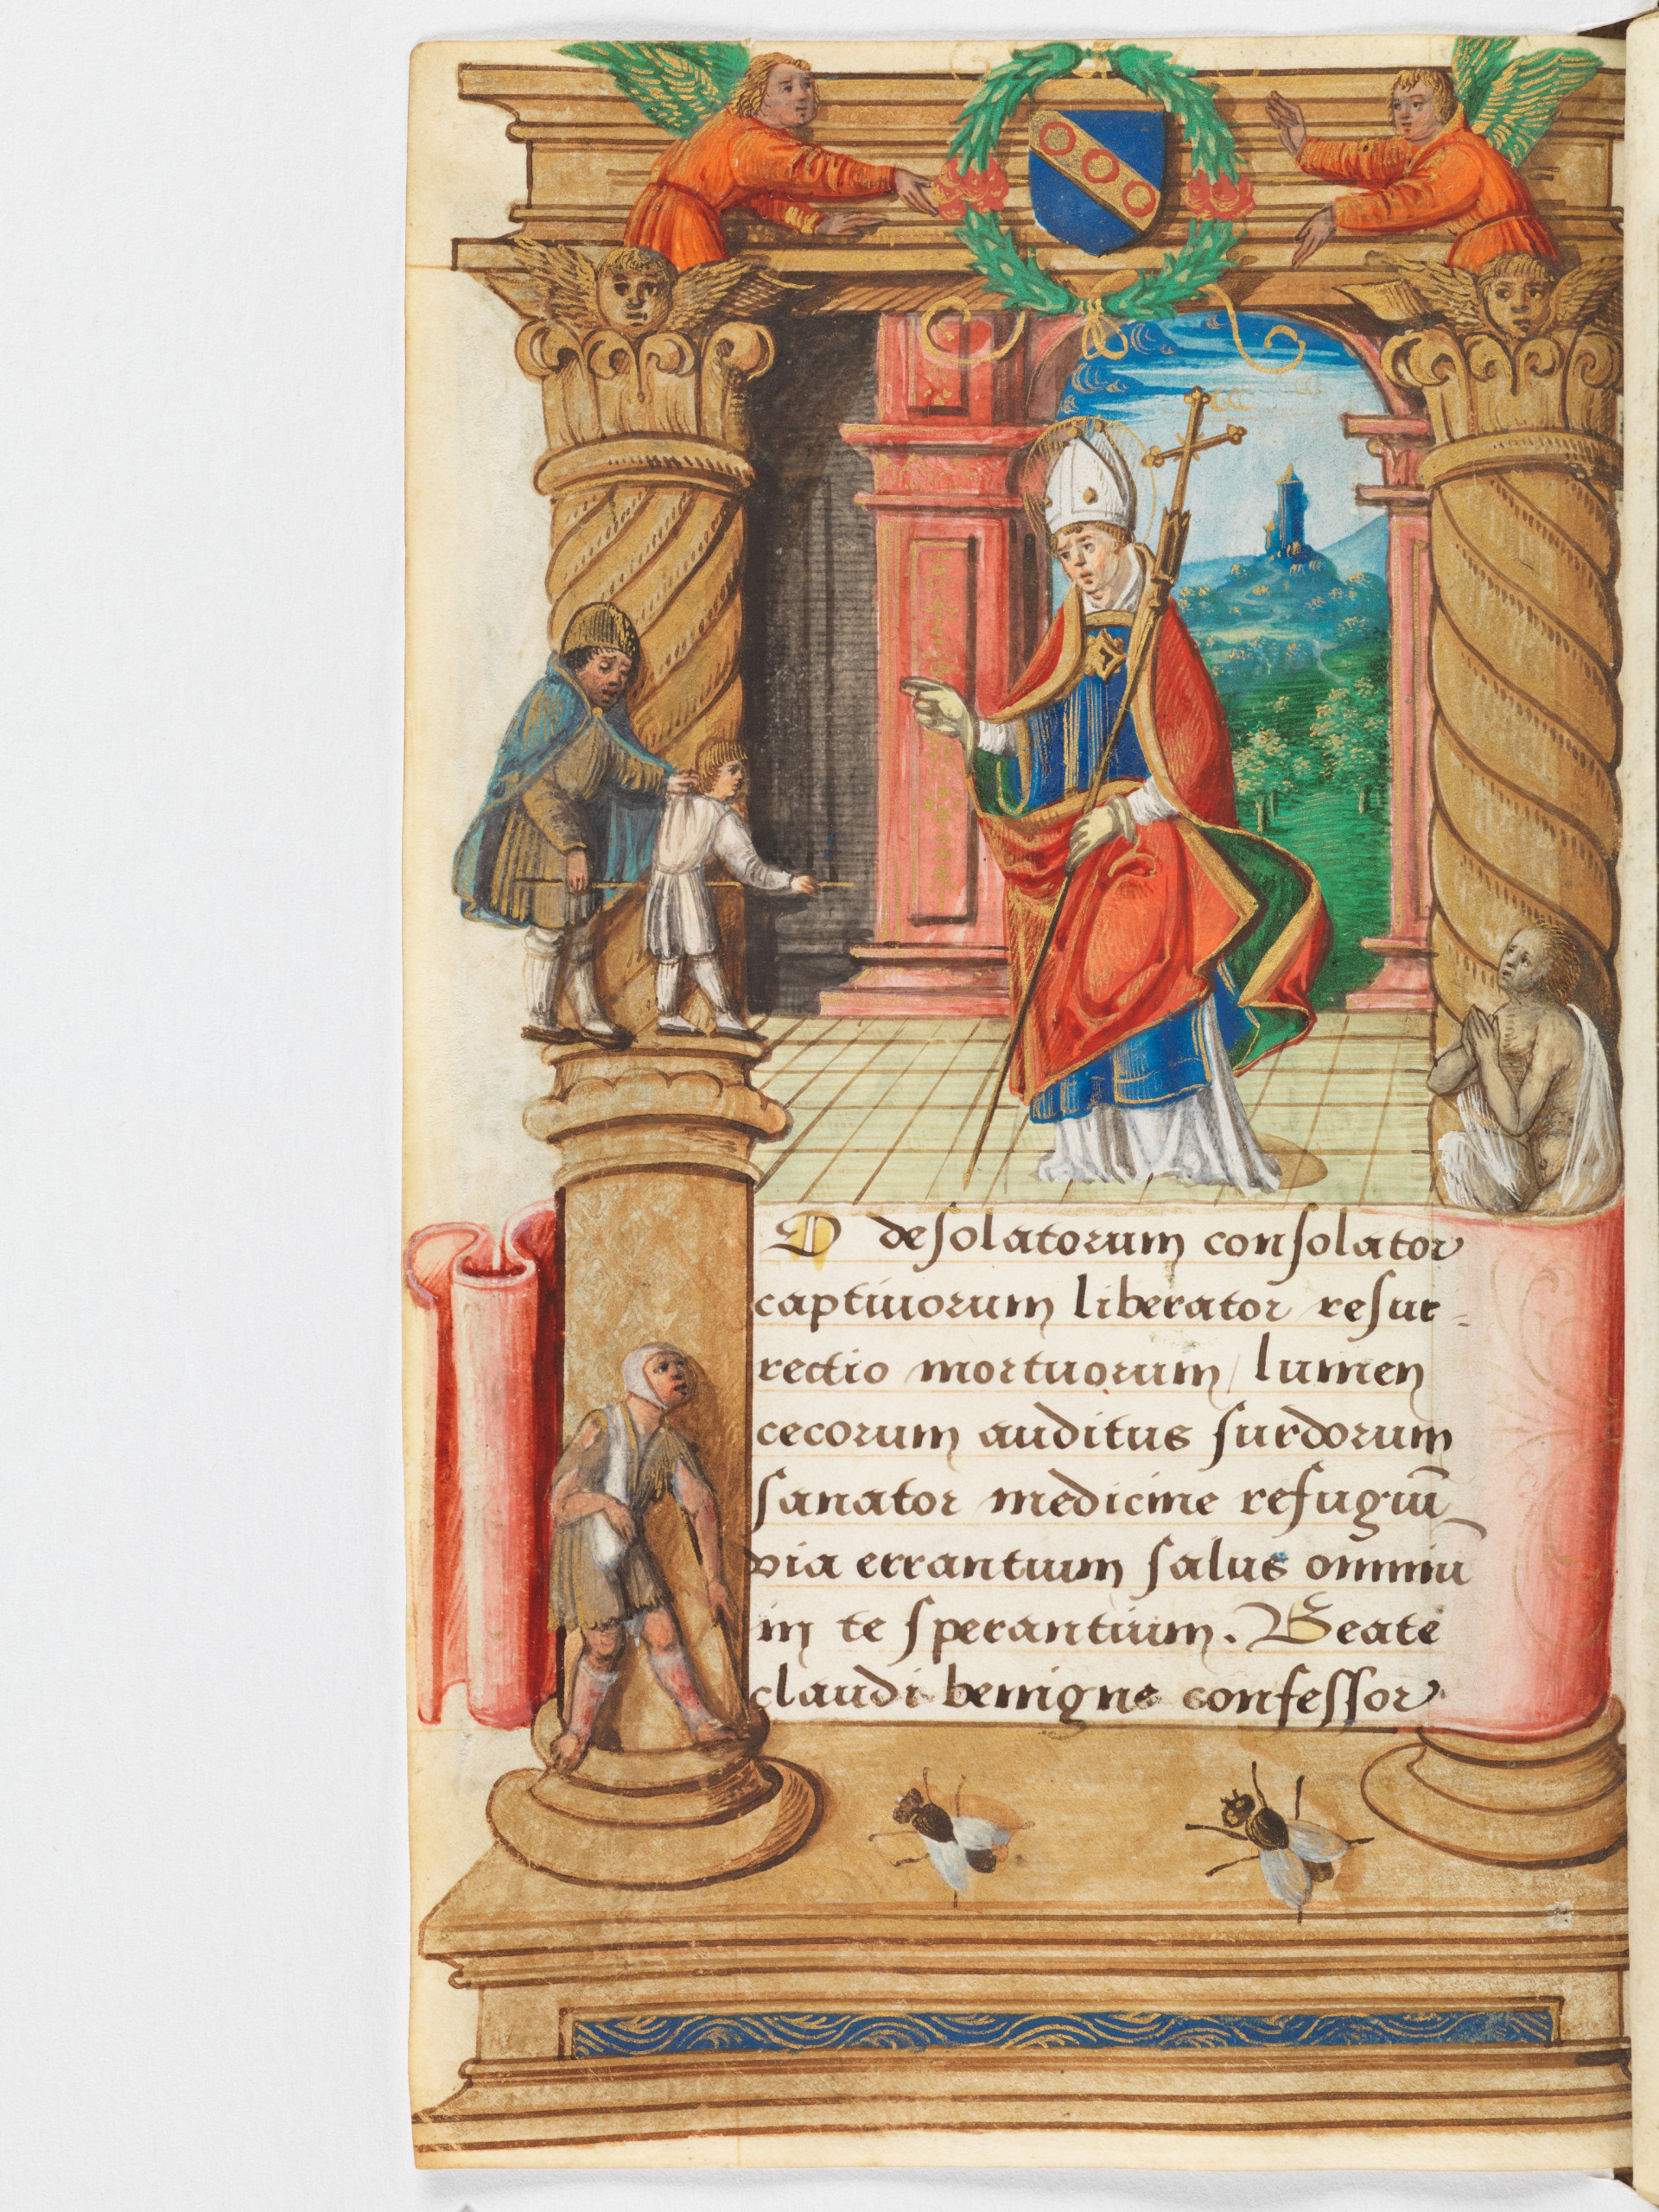 O desolatorum consolator
captiuorum liberator resur-
rectio mortuorum / lumen
cecorum auditus surdorum
sanator medicine refugiū
via errantium salus omniū
in te sperantium. Beate
claudi benigne confessor